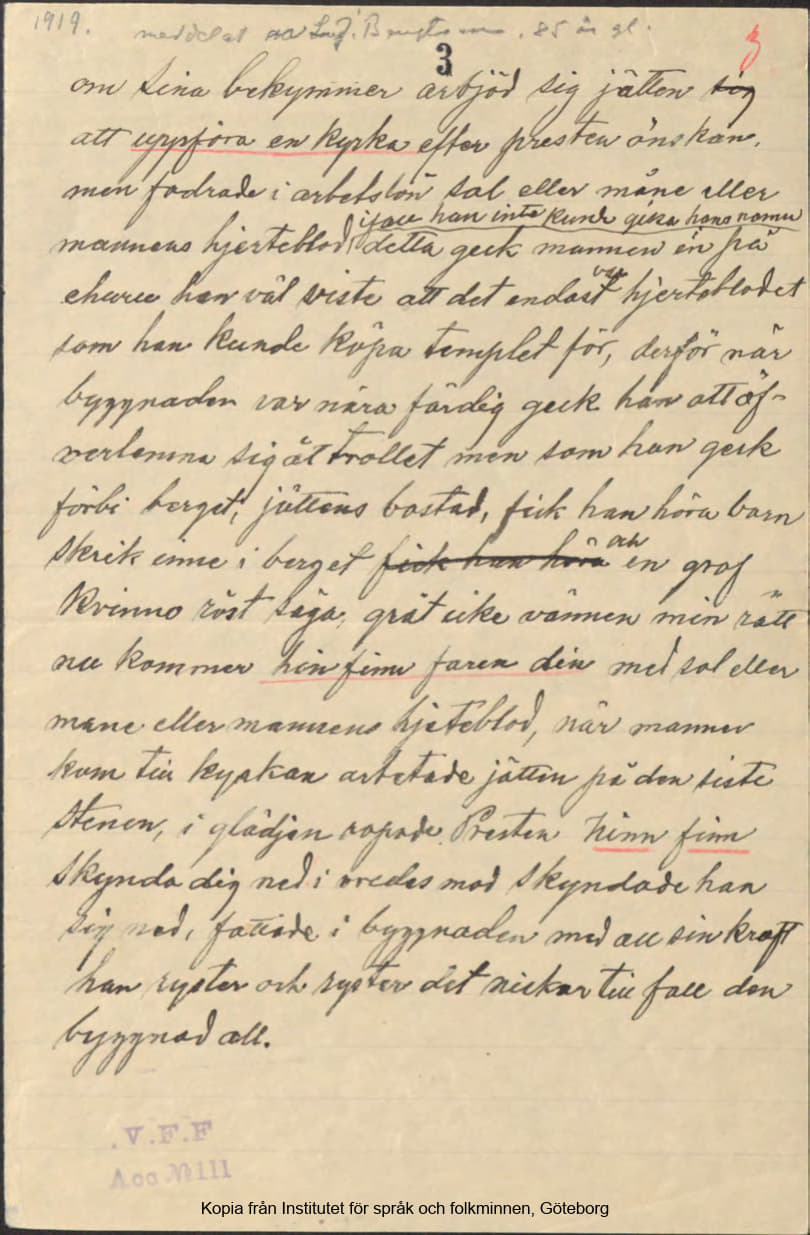 1919.
meddelat av Lud. Bengtsson. 85 år gl.
3
3
om sina bekymmer erbjöd sig jätten sig
att uppföra en kyrka efter presten önskan,
men fodrade i arbetslön sol eller måne eller
ifall han inte kunde gissa hans namn
mannens hjerteblod, detta geck mannen in på
ehuru han väl viste att det endast var hjerteblodet
som han kunde köpa templet för, derför när
byggnaden var nära färdig geck han att öf-
verlemna sig åt trollet men som han geck
förbi berget, jättens bostad, fick han höra barn
skrik inne i berget fick han höra och en grof
kvinno röst säga, gråt icke vännen min rätt
nu kommer hin finn faren din med sol eller
måne eller mannens hjeteblod, när mannen
kom till kyrkan arbetade jätten på den siste
stenen, i glädjen ropade Presten hinn finn
skynda dig ned i vredes mod skyndade han
sig ned, fattade i byggnaden med all sin kraft
han ryster och ryster det nickar till fall den
byggnad all.
V.F.F
Acc № 111
Kopia från Institutet för språk och folkminnen, Göteborg